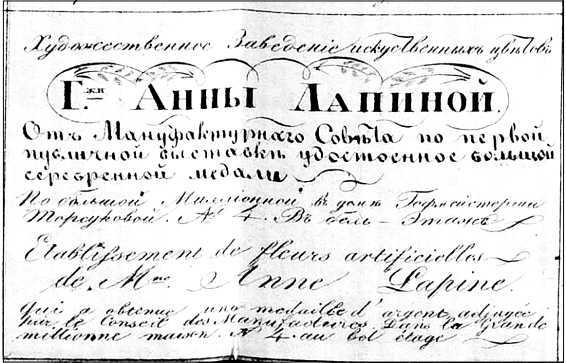 Художественное Заведенiе искуственныхъ цвѣтовъ
Г.жи Анны Лапиной.
Отъ Мануфактурнаго Совѣта по первой
публичной выставкѣ удостоенное большой
серебренной медали
По большой Миллiонной въ домѣ Гофмейстерши
Торсуковой № 4. Въ бель-Этажѣ
Etablissement de fleurs artificielles
de Mme Anne Lapine.
Qui a obtenue une medaille d'argent adjugée
par le Conseil des Manufactures. Dans la Grande
millionne maison № 4 au bel étage